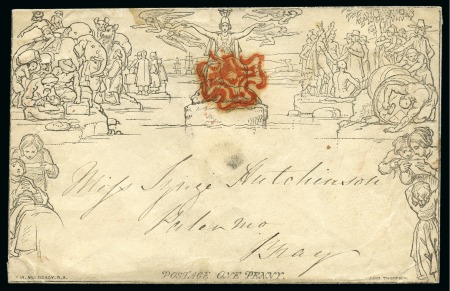 Miss Synge Hutchinson
Palermo
Bray
W. MULREADY. R.A.
POSTAGE ONE PENNY.
JOHN THOMPSON